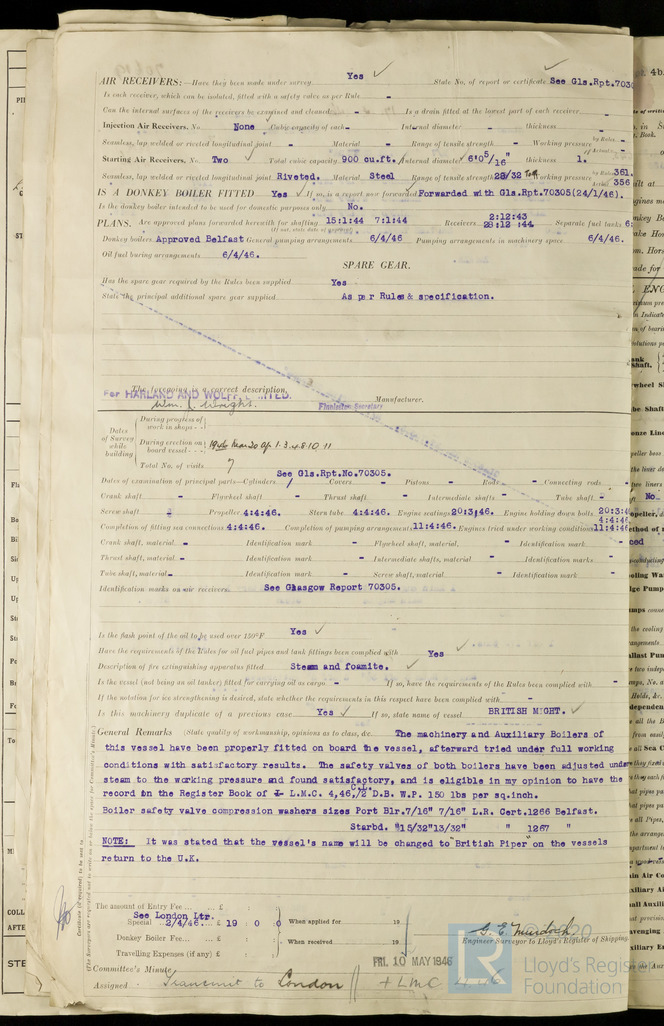 AIR RECEIVERS:—Have they been made under survey Yes ✓ State No. of report or certificate See Gls.Rpt.7030
Is each receiver, which can be isolated, fitted with a safety valve as per Rule -
Can the internal surfaces of the receivers be examined and cleaned - Is a drain fitted at the lowest part of each receiver -
Injection Air Receivers, No. None Cubic capacity of each - Internal diameter - thickness -
Seamless, lap welded or riveted longitudinal joint - Material - Range of tensile strength - Working pressure by Rules -
Starting Air Receivers, No. Two ✓ Total cubic capacity 900 cu.ft. Internal diameter 6'0 5/16" thickness 1.
Seamless, lap welded or riveted longitudinal joint Riveted. Material Steel Range of tensile strength 28/32 Working pressure by Rules 361.
Actual 356
IS A DONKEY BOILER FITTED Yes ✓ If so, is a report now forwarded Forwarded with Gls.Rpt.70305(24/1/46).
Is the donkey boiler intended to be used for domestic purposes only No.
PLANS. Are approved plans forwarded herewith for shafting 15:1:44 7:1:44 Receivers 2:12:43 28:12:44 Separate fuel tanks 6:
(If not, state date of approval)
Donkey boilers Approved Belfast General pumping arrangements 6/4/46 Pumping arrangements in machinery space 6/4/46.
Oil fuel burning arrangements 6/4/46.
SPARE GEAR.
Has the spare gear required by the Rules been supplied Yes
State the principal additional spare gear supplied As per Rules & specification.
The foregoing is a correct description,
For HARLAND AND WOLFF LIMITED.
Wm. J. Wright. Manufacturer.
Secretary
Dates of Survey while building
During progress of work in shops - -
During erection on board vessel - - 1946 Mar 20 Ap. 1. 3. 4. 8. 10. 11
Total No. of visits 7
See Gls.Rpt.No.70305.
Dates of examination of principal parts—Cylinders / Covers - Pistons - Rods - Connecting rods -
Crank shaft - Flywheel shaft - Thrust shaft - Intermediate shafts - Tube shaft -
Screw shaft - Propeller 4:4:46. Stern tube 4:4:46. Engine seatings 20:3:46. Engine holding down bolts 20:3:4
4:4:46
Completion of fitting sea connections 4:4:46. Completion of pumping arrangements 11:4:46. Engines tried under working conditions 11:4:46
Crank shaft, material - Identification mark - Flywheel shaft, material - Identification mark -
Thrust shaft, material - Identification mark - Intermediate shafts, material - Identification marks -
Tube shaft, material - Identification mark - Screw shaft, material - Identification mark -
Identification marks on air receivers See Glasgow Report 70305.
Is the flash point of the oil to be used over 150°F Yes ✓
Have the requirements of the Rules for oil fuel pipes and tank fittings been complied with Yes ✓
Description of fire extinguishing apparatus fitted Steam and foamite. ✓
Is the vessel (not being an oil tanker) fitted for carrying oil as cargo - If so, have the requirements of the Rules been complied with -
If the notation for ice strengthening is desired, state whether the requirements in this respect have been complied with -
Is this machinery duplicate of a previous case Yes ✓ If so, state name of vessel BRITISH MIGHT. ✓
General Remarks (State quality of workmanship, opinions as to class, &c. The machinery and Auxiliary Boilers of
this vessel have been properly fitted on board the vessel, afterward tried under full working
conditions with satisfactory results. The safety valves of both boilers have been adjusted under
steam to the working pressure and found satisfactory, and is eligible in my opinion to have the
record in the Register Book of L.M.C. 4,46, C.L. 2 D.B. W.P. 150 lbs per sq.inch.
Boiler safety valve compression washers sizes Port Blr.7/16" 7/16" L.R. Cert.1266 Belfast.
Starbd. "15/32"13/32" " 1267 "
NOTE: It was stated that the vessel's name will be changed to "British Piper" on the vessels
return to the U.K.
The amount of Entry Fee ... £ : :
See London Ltr.
Special 2/4/46 ... £ 19 : 0 : 0 When applied for 19
Donkey Boiler Fee... ... £ : : When received 19
Travelling Expenses (if any) £ : :
G. E. Murdoch
Engineer Surveyor to Lloyd's Register of Shipping.
Committee's Minute FRI. 10 MAY 1946
Assigned Transmit to London + LMC 4.46
© 2020
LR
Lloyd's Register
Foundation